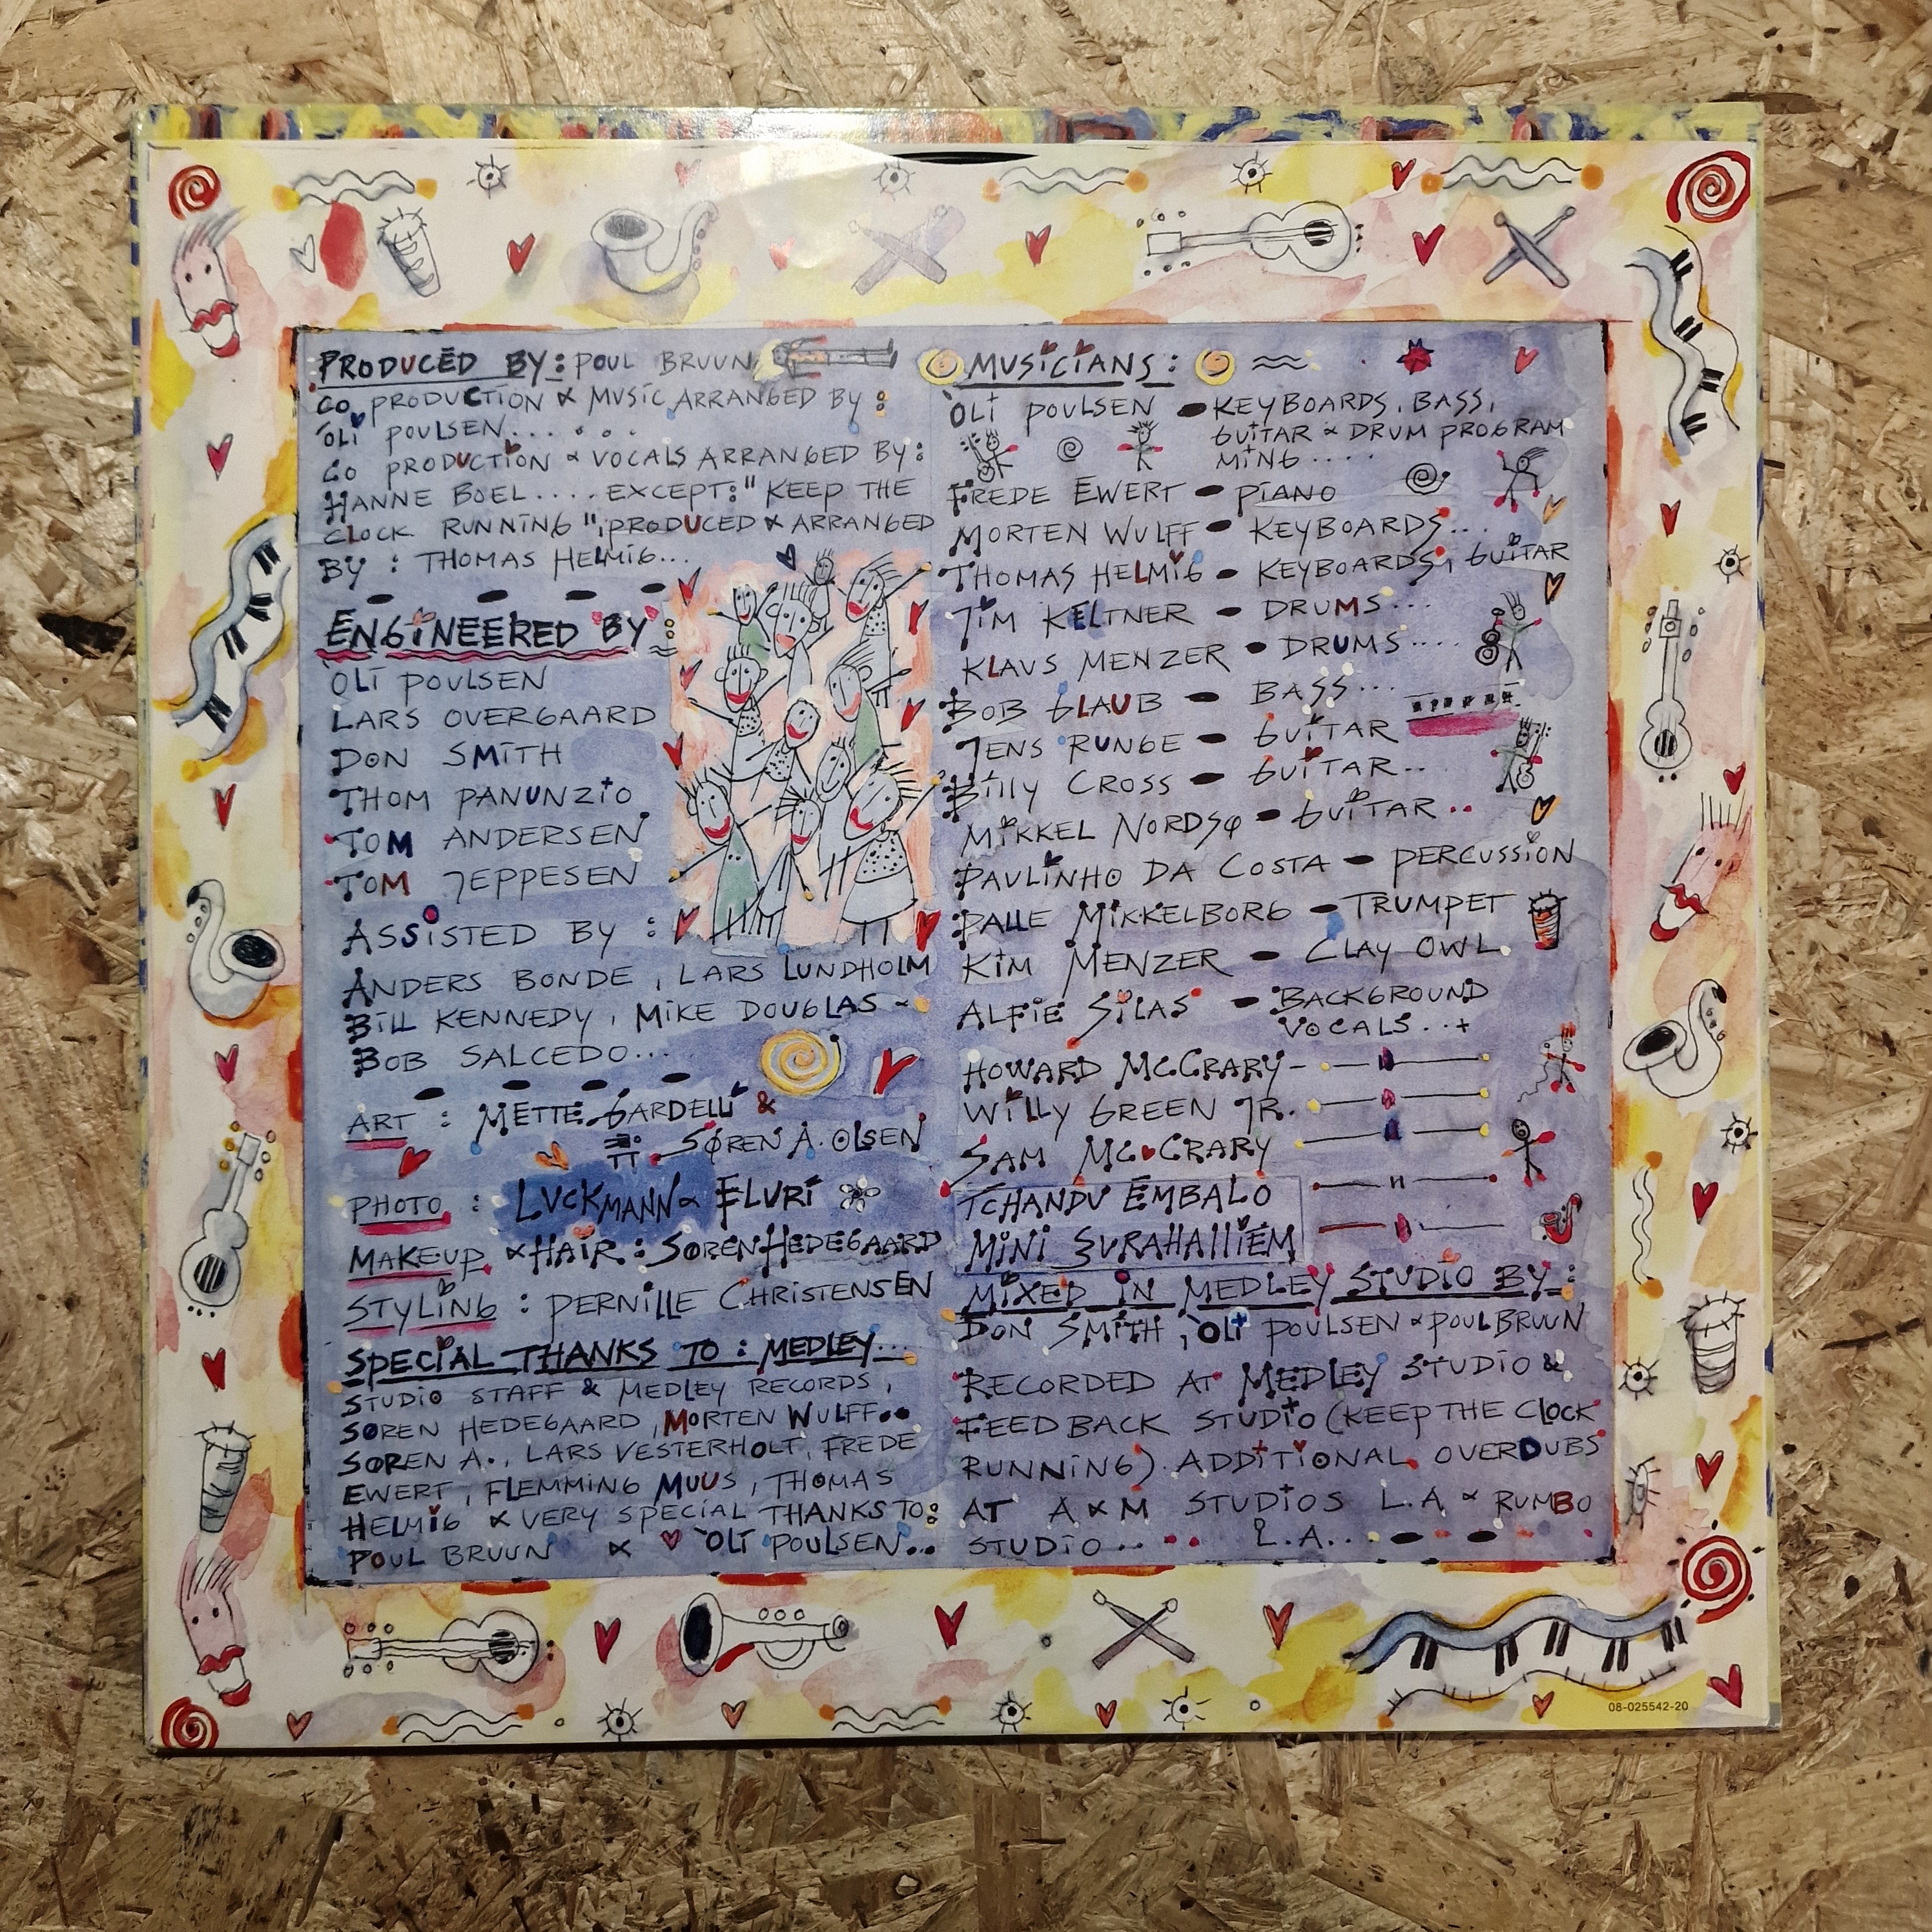 PRODUCED BY: POUL BRUUN
CO PRODUCTION & MUSIC ARRANGED BY:
OLI POULSEN.....
CO PRODUCTION & VOCALS ARRANGED BY:
HANNE BOEL.... EXCEPT: "KEEP THE
CLOCK RUNNING", PRODUCED & ARRANGED
BY: THOMAS HELMIG...
ENGINEERED BY:
OLI POULSEN
LARS OVERGAARD
DON SMITH
THOM PANUNZIO
TOM ANDERSEN
TOM JEPPESEN
ASSISTED BY:
ANDERS BONDE, LARS LUNDHOLM
BILL KENNEDY, MIKE DOUGLAS &
BOB SALCEDO...
ART: METTE GARDELLI &
SØREN A. OLSEN
PHOTO: LUCKMANN & ELURI
MAKEUP & HAIR: SØREN HEDEGAARD
STYLING: PERNILLE CHRISTENSEN
SPECIAL THANKS TO: MEDLEY...
STUDIO STAFF & MEDLEY RECORDS,
SØREN HEDEGAARD, MORTEN WULFF..
SØREN A., LARS VESTERHOLT, FREDE
EWERT, FLEMMING MUUS, THOMAS
HELMIG & VERY SPECIAL THANKS TO:
POUL BRUUN & OLI POULSEN...
MUSICIANS:
OLI POULSEN - KEYBOARDS, BASS,
GUITAR & DRUM PROGRAM
MING....
FREDE EWERT - PIANO
MORTEN WULFF - KEYBOARDS...
THOMAS HELMIG - KEYBOARDS, GUITAR
JIM KELTNER - DRUMS...
KLAUS MENZER - DRUMS....
BOB GLAUB - BASS...
JENS RUNGE - GUITAR
BILLY CROSS - GUITAR..
MIKKEL NORDSØ - GUITAR..
PAULINHO DA COSTA - PERCUSSION
PALLE MIKKELBORG - TRUMPET
KIM MENZER - CLAY OWL
ALFIE SILAS - BACKGROUND
VOCALS..+
HOWARD MCCRARY -
WILLY GREEN JR.
SAM MCCRARY
TCHANDU EMBALO
MINI SURAHALLIEM
MIXED IN MEDLEY STUDIO BY:
DON SMITH, OLI POULSEN & POUL BRUUN
RECORDED AT MEDLEY STUDIO &
FEED BACK STUDIO (KEEP THE CLOCK
RUNNING). ADDITIONAL OVERDUBS
AT A&M STUDIOS L.A & RUMBO
STUDIO.. L.A...
08-025542-20